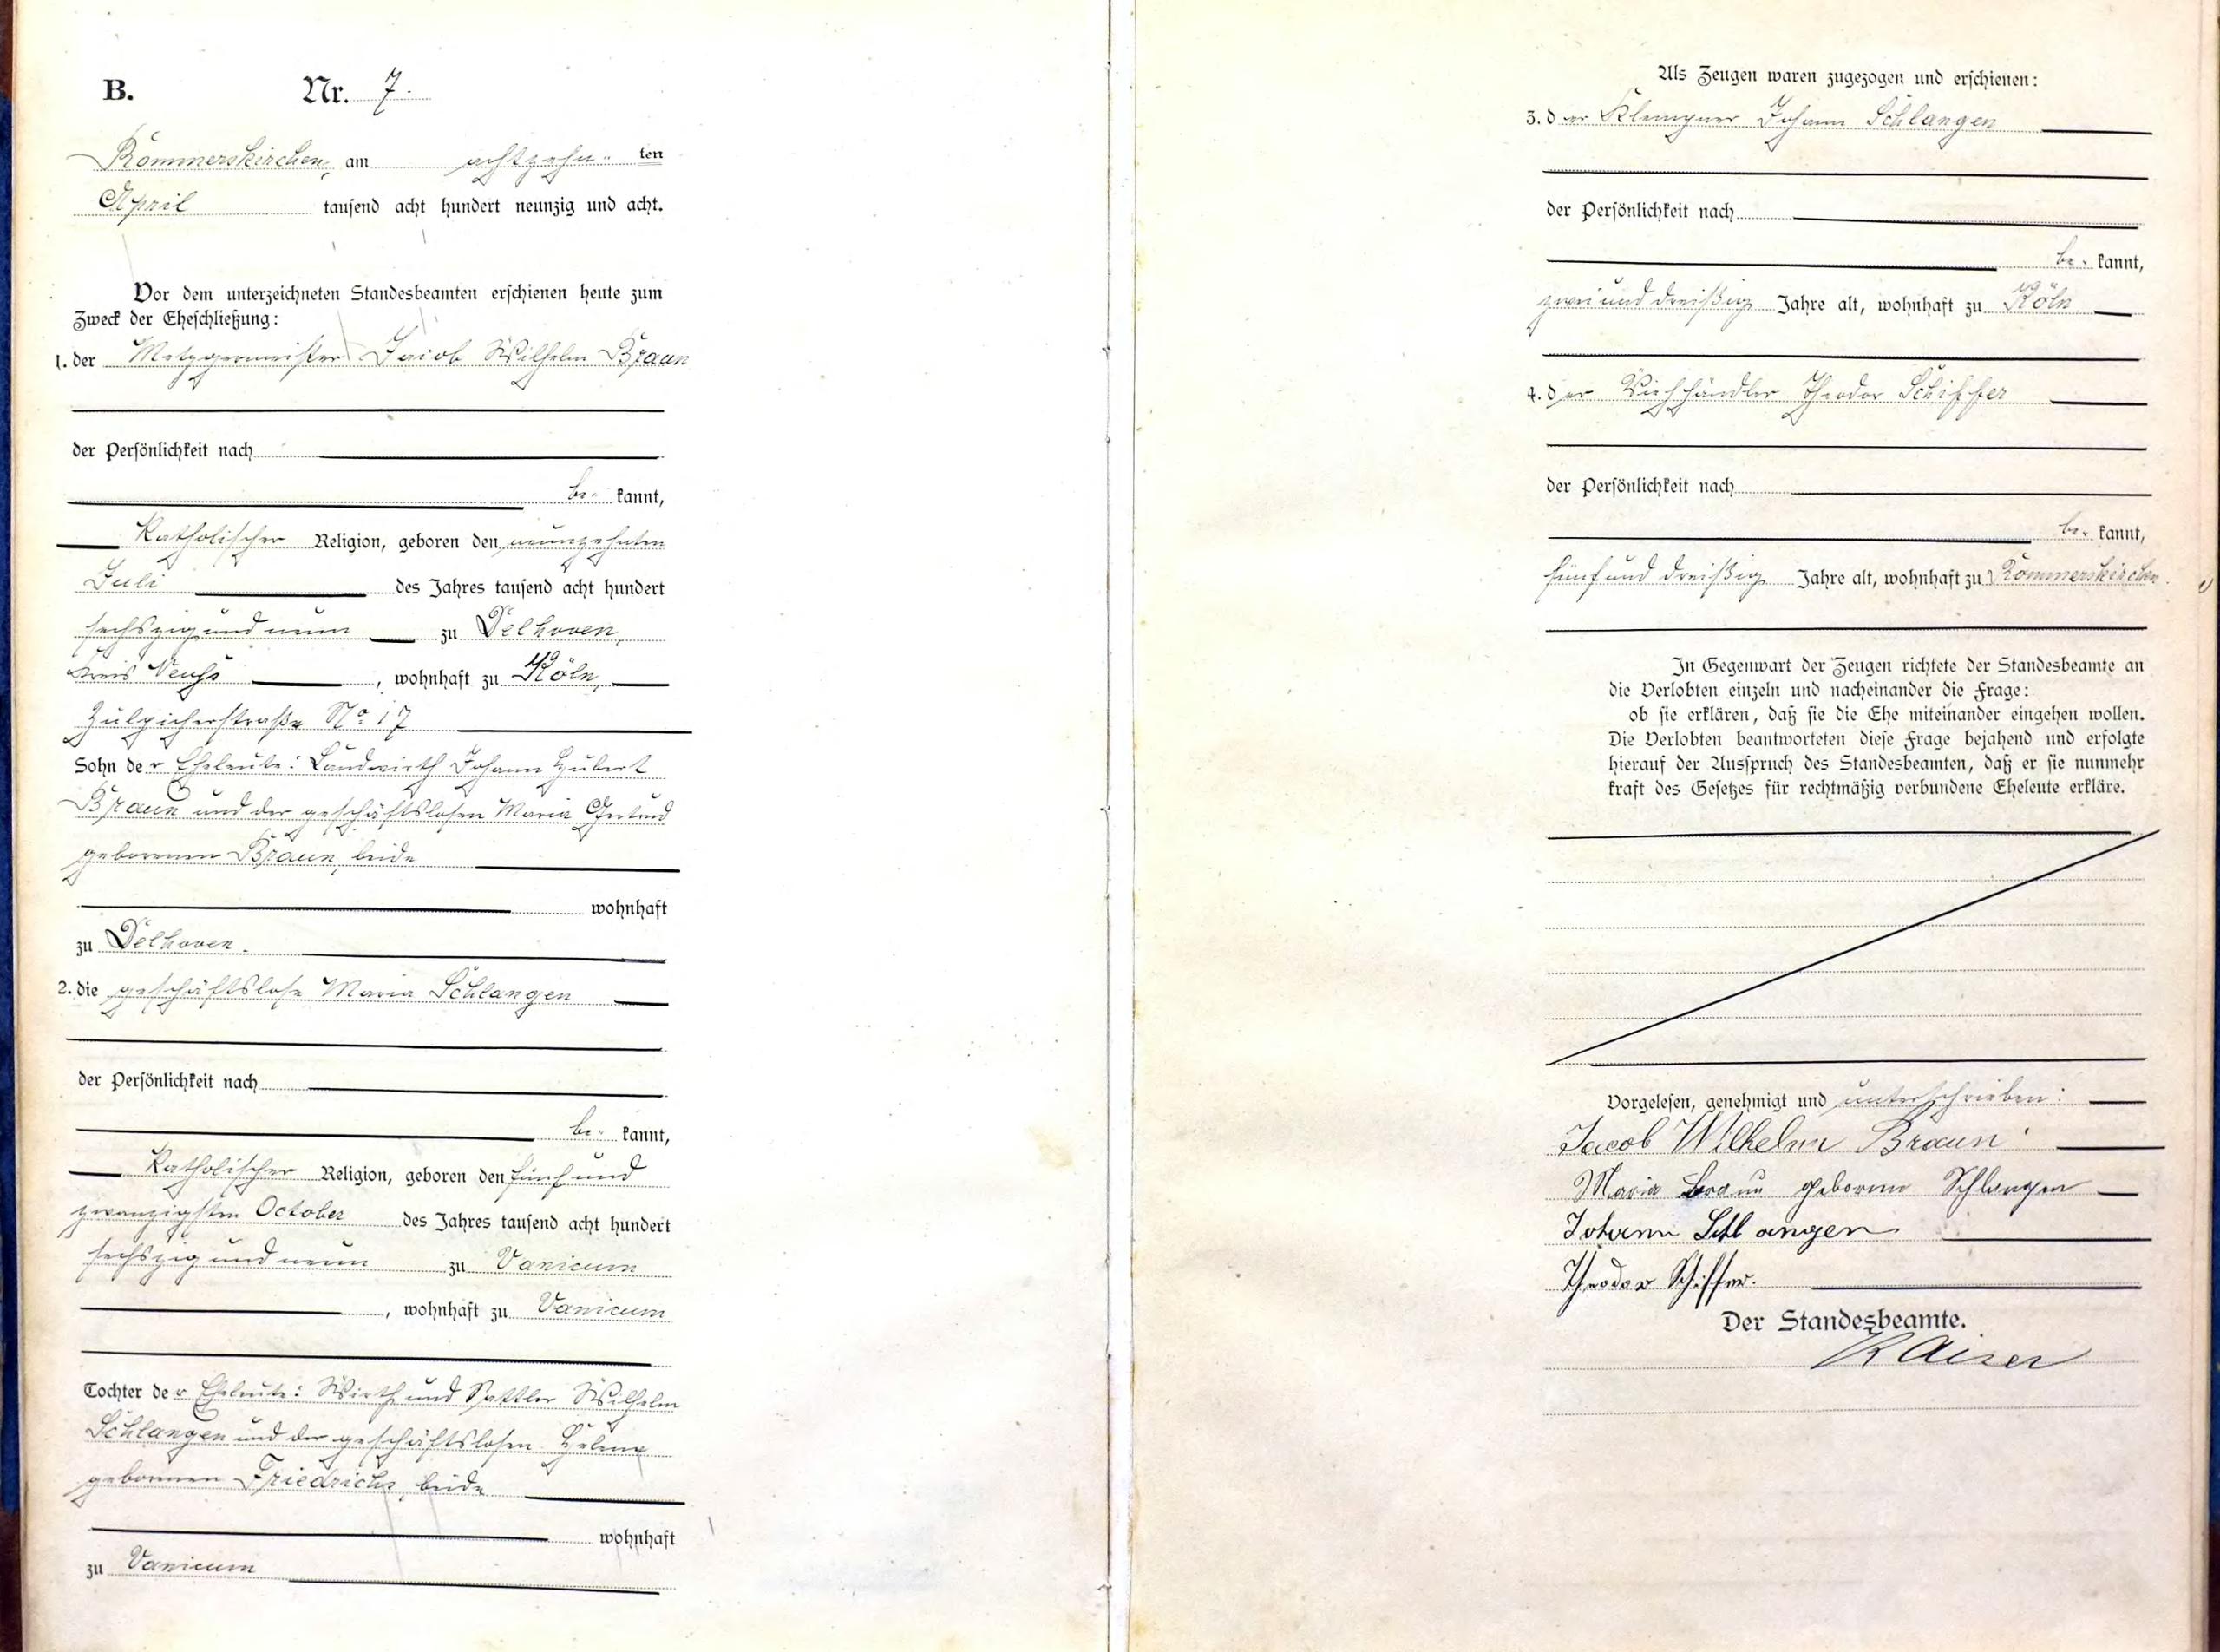 B. Nr. 7.
Rommerskirchen, am achtzehn ten
April tausend acht hundert neunzig und acht.
Vor dem unterzeichneten Standesbeamten erschienen heute zum
Zweck der Eheschließung:
1. der Metzgermeister Jacob Wilhelm Braun
der Persönlichkeit nach
be kannt,
katholischer Religion, geboren den neunzehnten
Juli des Jahres tausend acht hundert
sechszig und neun zu Delhoven,
Kreis Neuss, wohnhaft zu Köln,
Zülpicherstraße No 17
Sohn der Eheleute: Landwirth Johann Hubert
Braun und der geschäftslosen Maria Gertrud
geborenen Braun, beide
wohnhaft
zu Delhoven.
2. die geschäftslose Maria Schlangen
der Persönlichkeit nach
be kannt,
katholischer Religion, geboren den fünf und
zwanzigsten October des Jahres tausend acht hundert
sechszig und neun zu Vanicum
, wohnhaft zu Vanicum
Tochter der Eheleute: Wirth und Sattler Wilhelm
Schlangen und der geschäftslosen Helena
geborenen Friedrichs, beide
wohnhaft
zu Vanicum
Als Zeugen waren zugezogen und erschienen:
3. der Klempner Johann Schlangen
der Persönlichkeit nach
be kannt,
zwei und dreißig Jahre alt, wohnhaft zu Köln
4. der Viehhändler Theodor Schiffer
der Persönlichkeit nach
be kannt,
fünf und dreißig Jahre alt, wohnhaft zu Rommerskirchen.
In Gegenwart der Zeugen richtete der Standesbeamte an
die Verlobten einzeln und nacheinander die Frage:
ob sie erklären, daß sie die Ehe miteinander eingehen wollen.
Die Verlobten beantworteten diese Frage bejahend und erfolgte
hierauf der Ausspruch des Standesbeamten, daß er sie nunmehr
kraft des Gesetzes für rechtmäßig verbundene Eheleute erkläre.
Vorgelesen, genehmigt und unterschrieben:
Jacob Wilhelm Braun
Maria Braun geborene Schlangen
Johann Schlangen
Theodor Schiffer.
Der Standesbeamte.
Kaiser